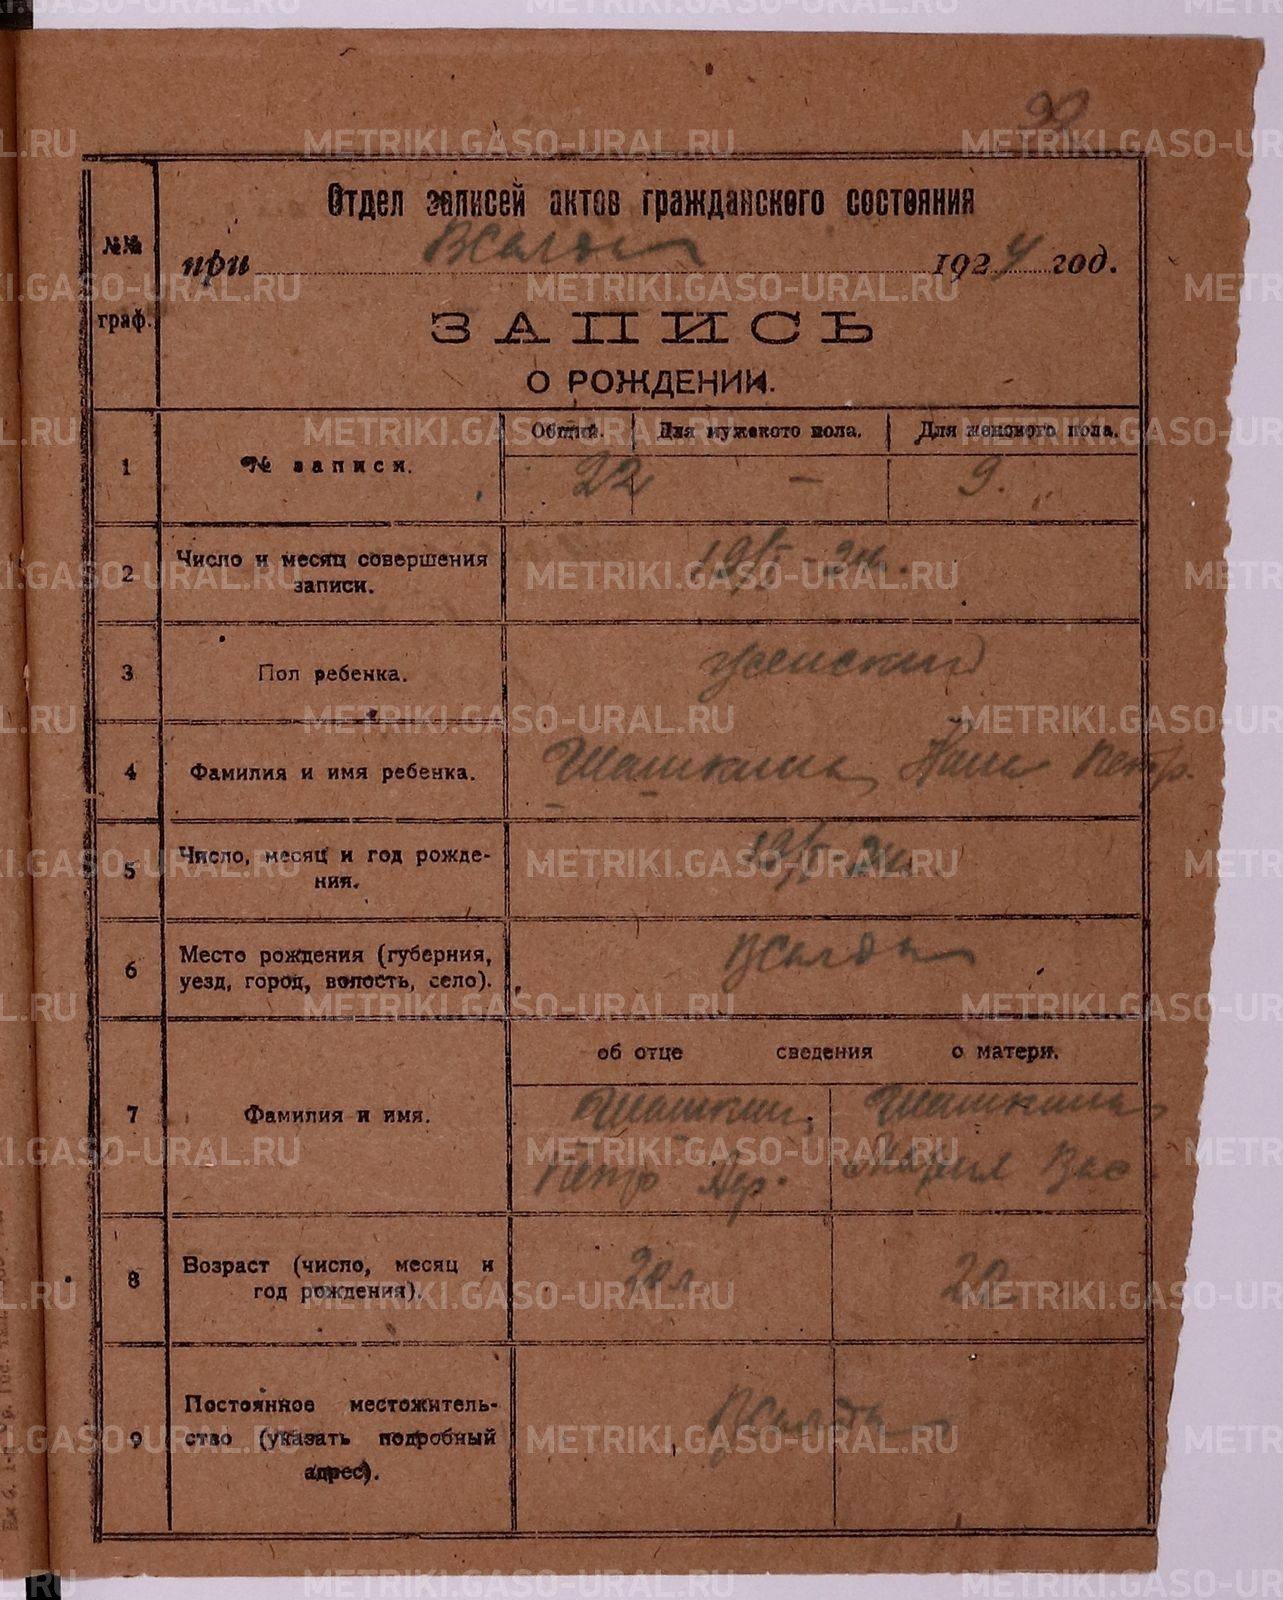 Отдел записей актов гражданского состояния
№№ граф.
при ВСалда 1924 год.
ЗАПИСЬ
О РОЖДЕНИИ.
1 № записи. Общий. Для мужского пола. Для женского пола.
22 – 9.
2 Число и месяц совершения записи. 19/I – 24.
3 Пол ребенка. женский
4 Фамилия и имя ребенка. Шашкина, Петр.
5 Число, месяц и год рождения. 24
6 Место рождения (губерния, уезд, город, волость, село). ВСалда
об отце сведения о матери.
7 Фамилия и имя. Шашкин, Шашкина
Петр Мария Вас
8 Возраст (число, месяц и год рождения). 22
9 Постоянное местожительство (указать подробный адрес). ВСалда
METRIKI.GASO-URAL.RU